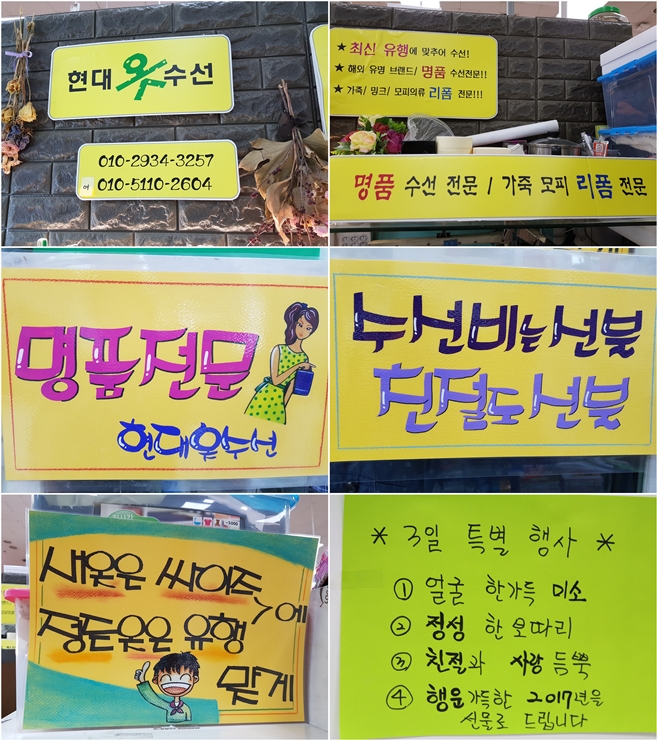 현대옷수선
010-2934-3257
여 010-5110-2604
★ 최신 유행에 맞추어 수선!
★ 해외 유명 브랜드/ 명품 수선전문!!
★ 가죽/ 밍크/ 모피의류 리폼 전문!!!
명품 수선 전문 / 가죽 모피 리폼 전문
명품전문
현대옷수선
수선비는 선불
친절도 선불
새옷은 싸이즈에
정든옷은 유행
맞게
* 3일 특별 행사 *
① 얼굴 한가득 미소
② 정성 한보따리
③ 친절과 사랑 듬뿍
④ 행운가득한 2017년을
선물로 드립니다